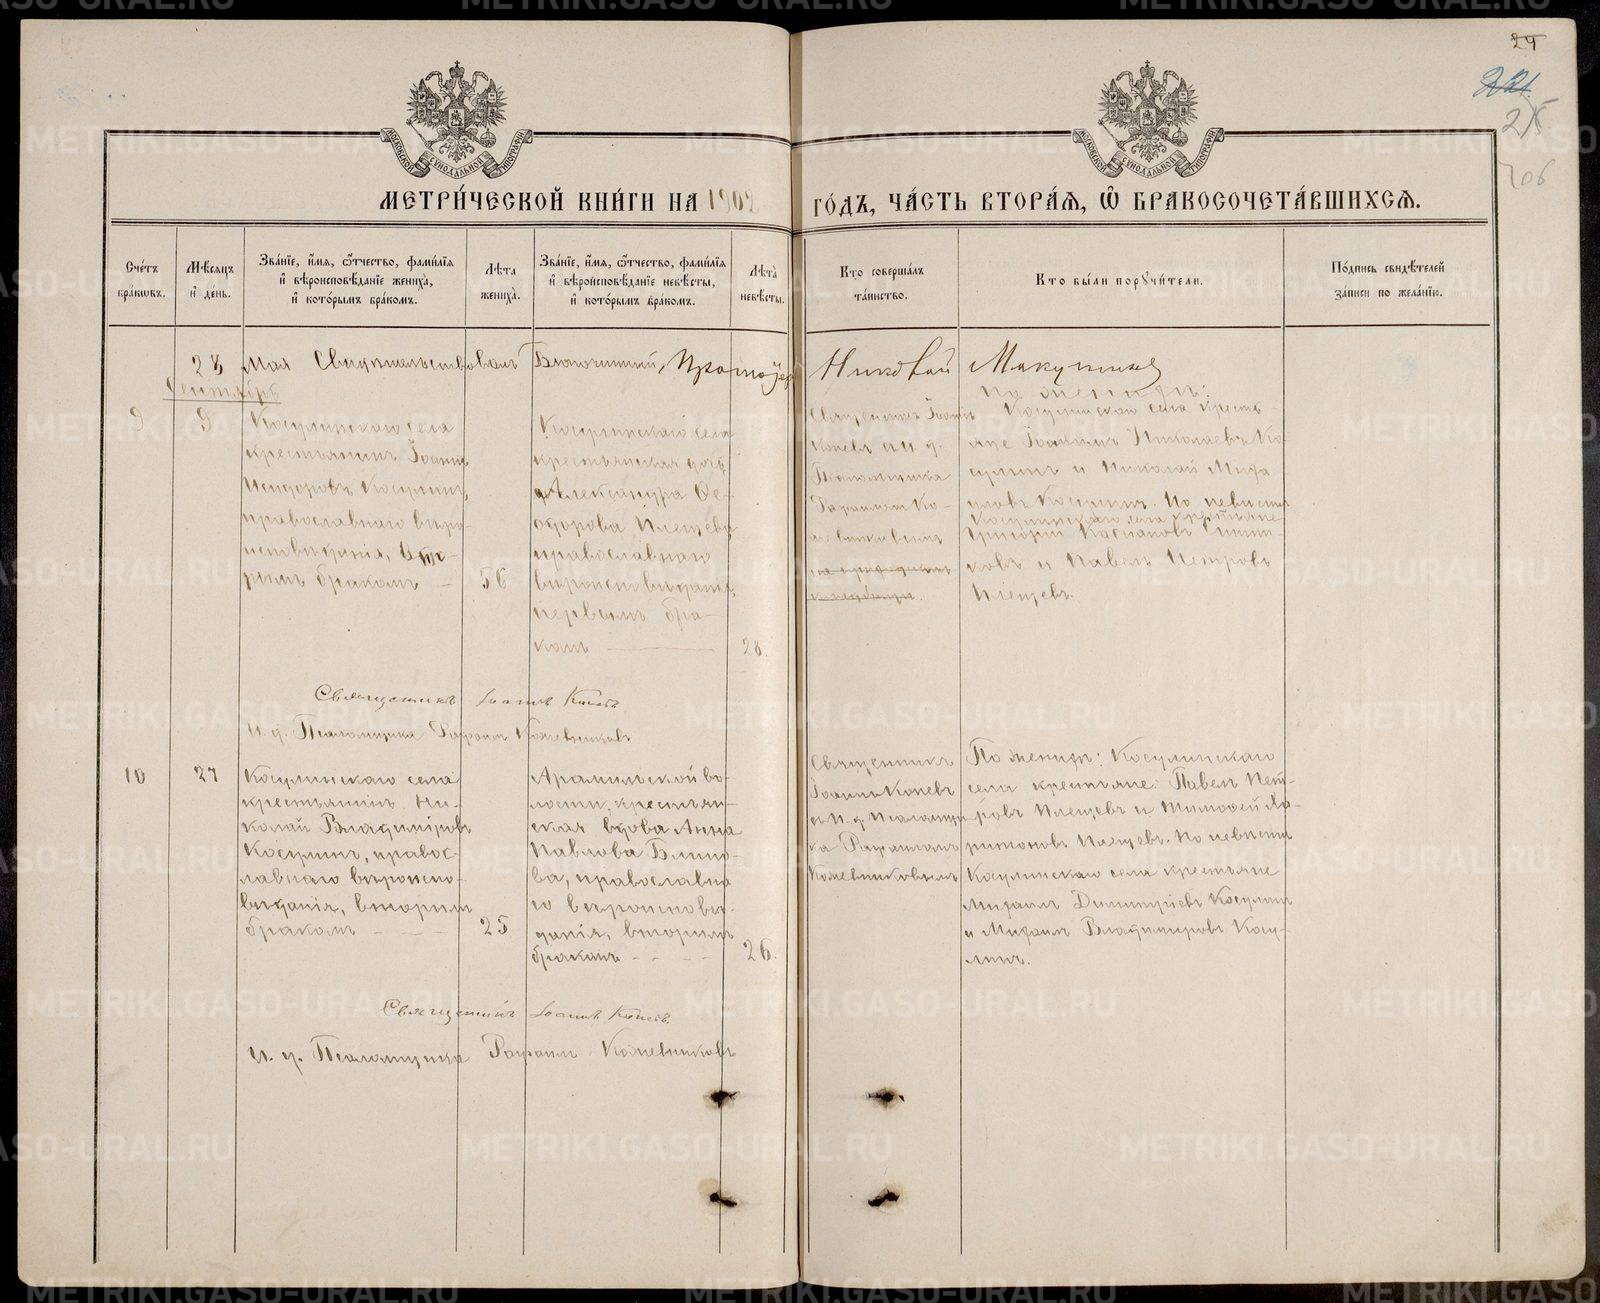 24
221.
215
206
МОСКОВСКОЙ СѴНОДАЛЬНОЙ ТИПОГРАФІИ
МОСКОВСКОЙ СѴНОДАЛЬНОЙ ТИПОГРАФІИ
МЕТРИ́ЧЕСКОЙ КНИ́ГИ НА 1902 ГО́ДЪ, ЧА́СТЬ ВТОРА́Ѧ, Ѽ БРАКОСОЧЕТА́ВШИХСѦ.
Сче́тъ бра́кωвъ.
Мѣ́сѧцъ и҆ де́нь.
Зва́нїе, и҆́мѧ, ѻ҆́тчество, фами́лїѧ
и҆ вѣроисповѣ́данїе жениха̀,
и҆ кото́рымъ бра́комъ.
Лѣ́та жениха̀.
Зва́нїе, и҆́мѧ, ѻ҆́тчество, фами́лїѧ
и҆ вѣроисповѣ́данїе невѣ́сты,
и҆ кото́рымъ бра́комъ.
Лѣ́та невѣ́сты.
Кто̀ соверша́лъ та́инство.
Кто̀ бы́ли порꙋчи́тели.
По́дпись свидѣ́телей за́писи по жела́нїю.
28 Мая Свидѣтельствовалъ Благочинный, Протоіерей Николай Макушинъ
Сентябрь
9
9
Косулинскаго села
крестьянинъ Іоаннъ
Исидоровъ Косулинъ,
православнаго вѣро-
исповѣданія, вто-
рымъ бракомъ
56
Косулинскаго села
крестьянская дочь
Александра Ѳе-
одорова Плещева
православнаго
вѣроисповѣданія,
первымъ бра-
комъ
28.
Священникъ Іоаннъ
Коневъ и И. д.
Псаломщика
Рафаилъ Ко-
жевниковымъ
по женихѣ:
Косулинскаго села кресть-
яне Іоаннъ Николаевъ Ко-
сулинъ и Николай Миха
иловъ Косулинъ. По невѣстѣ
Косулинскаго села крестьяне
Григорій
и Павелъ Петровъ
Плещевъ.
Священникъ Іоаннъ Коневъ
И. д. Псаломщика Рафаилъ Кожевниковъ
10
27
Косулинскаго села
крестьянинъ Ни-
колай Владиміровъ
Косулинъ, правос-
лавнаго вѣроиспо-
вѣданія, вторымъ
бракомъ
25
Арамильской во-
лости, крестьян-
ская вдова Анна
Павлова Блино-
ва, православна
го вѣроисповѣ-
данія, вторымъ
бракомъ
26.
Священникъ
Іоаннъ Коневъ
и И. д. Псаломщи-
ка Рафаиломъ
Кожевниковымъ
По женихѣ: Косулинскаго
села крестьяне: Павелъ Пет-
ровъ Плещевъ и Тимофей Ла-
ріоновъ Плещевъ. По невѣстѣ
Косулинскаго села крестьяне
Михаилъ Димитріевъ Косулинъ
и Михаилъ Владиміровъ Косу-
линъ.
Священникъ Іоаннъ Коневъ.
И. д. Псаломщика Рафаилъ Кожевниковъ
METRIKI.GASO-URAL.RU